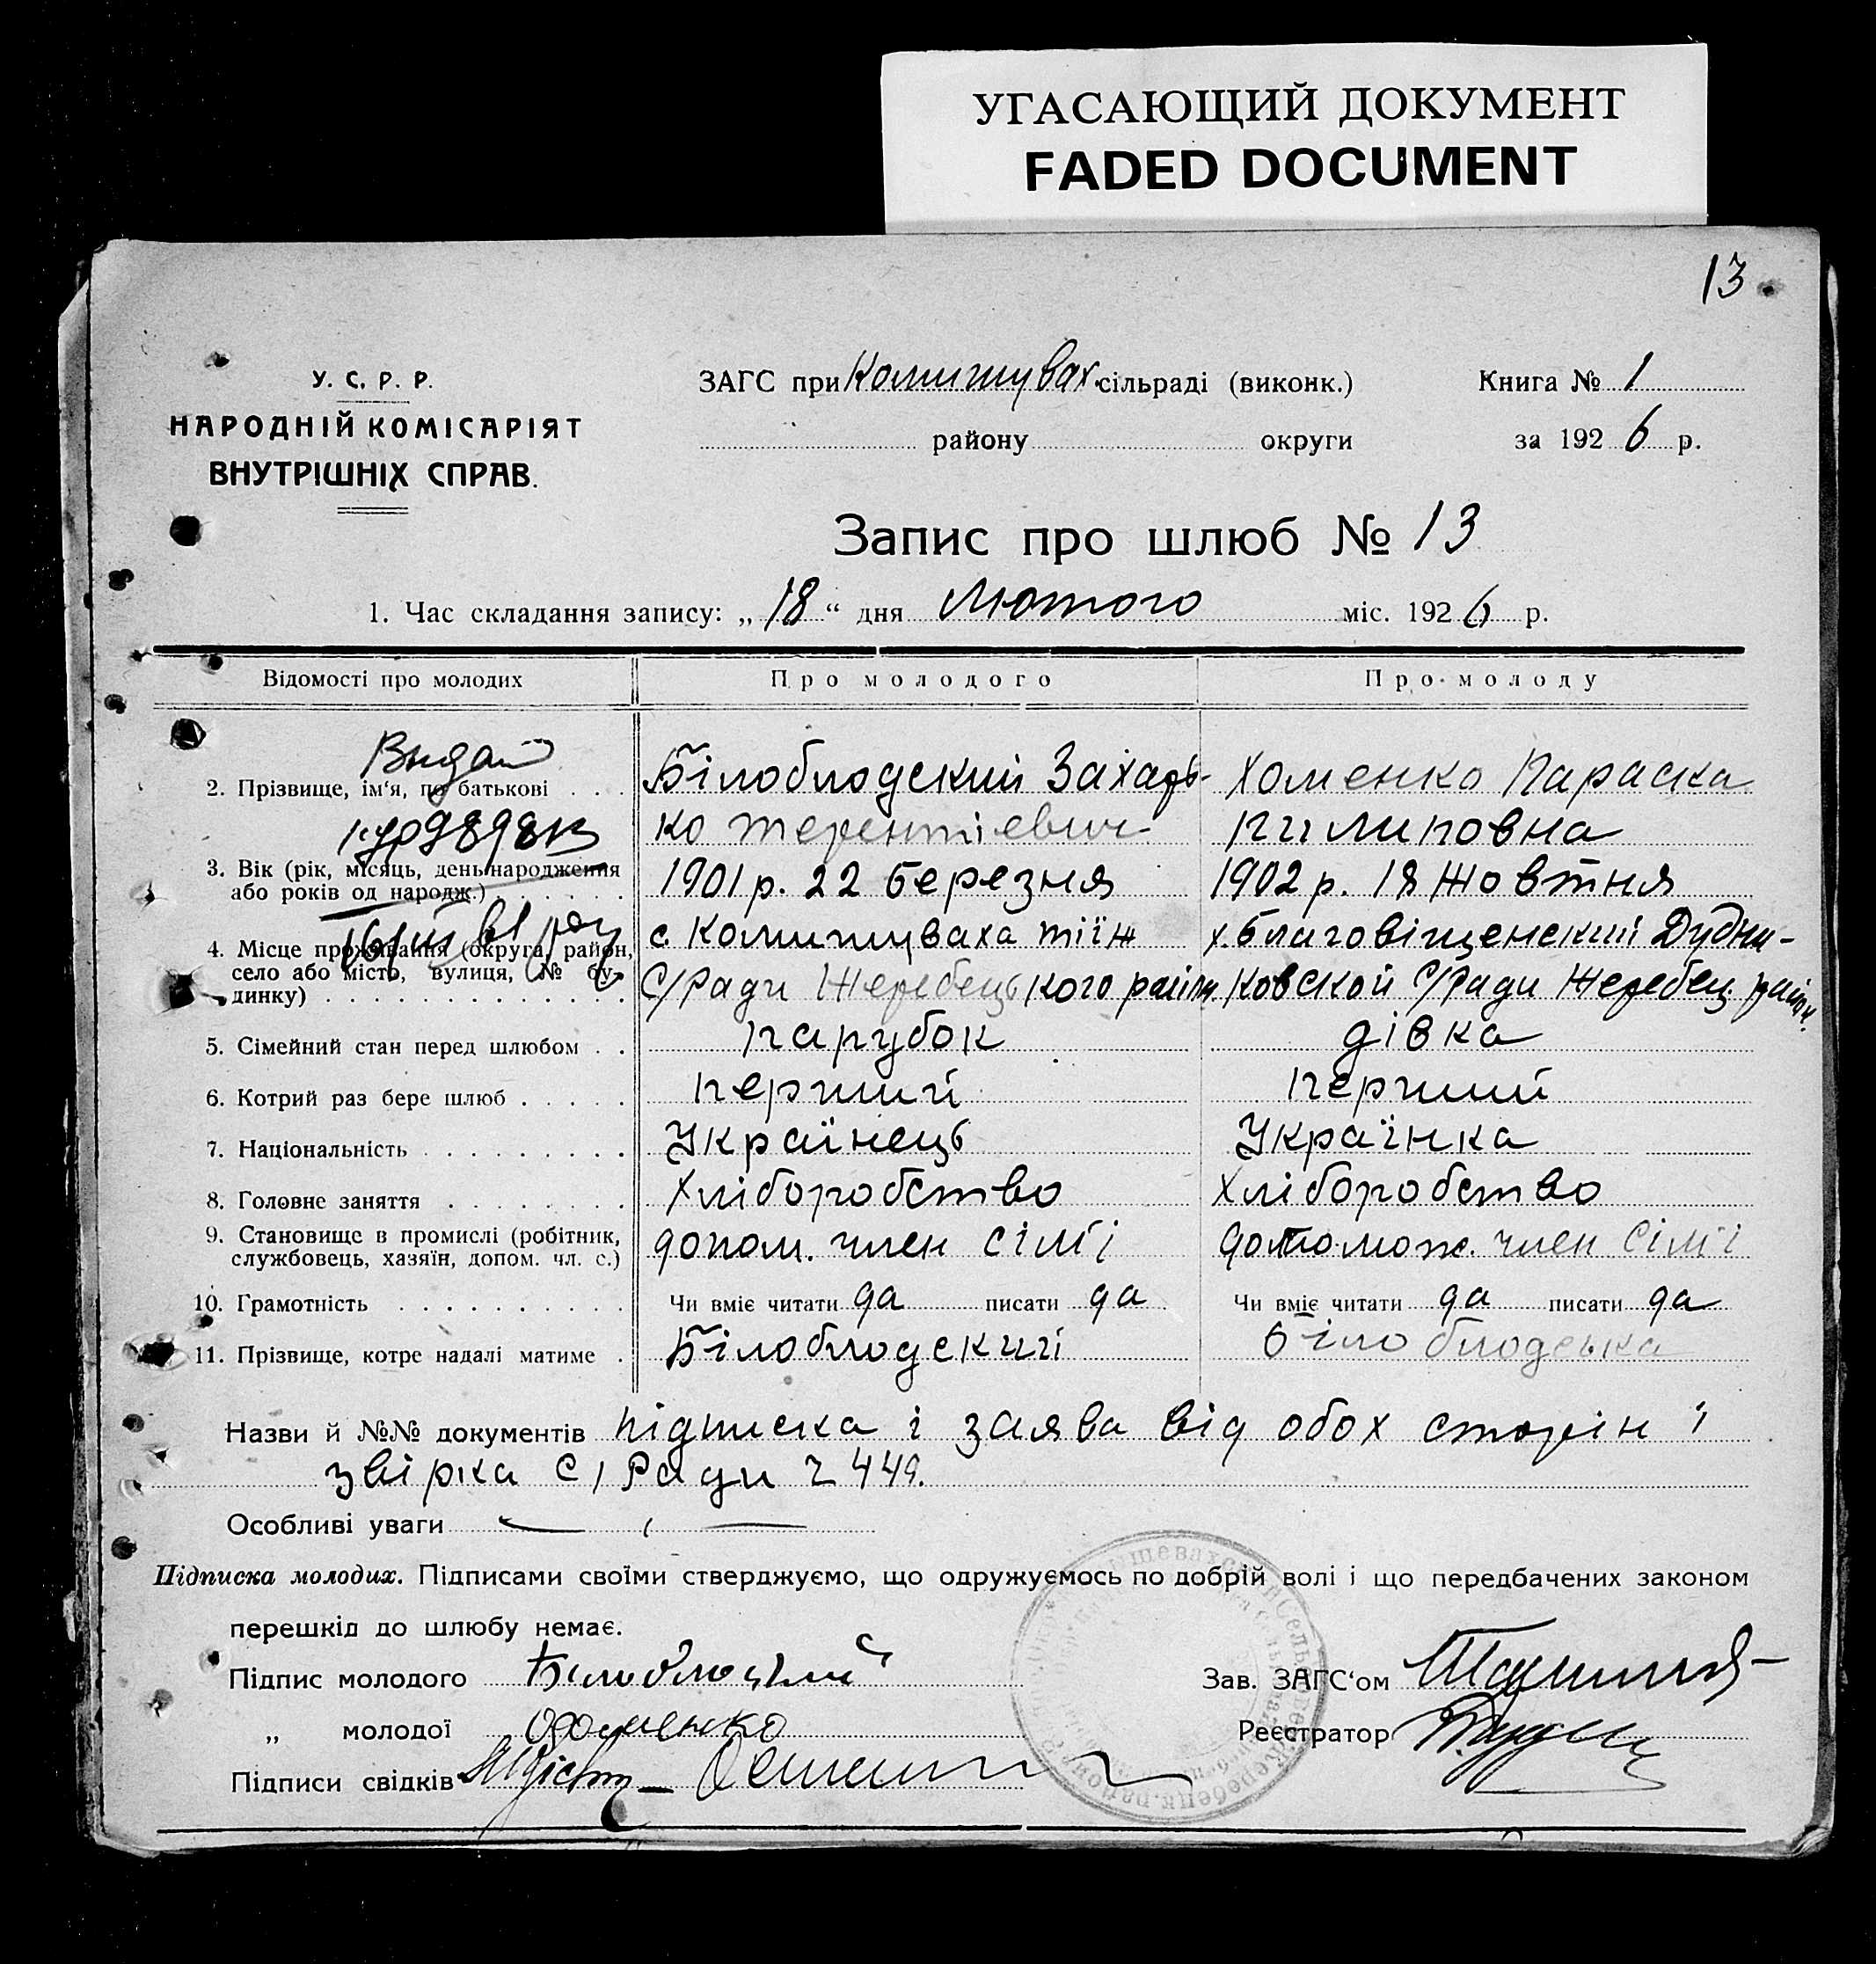 УГАСАЮЩИЙ ДОКУМЕНТ
FADED DOCUMENT
13
У. С. Р. Р.
НАРОДНІЙ КОМІСАРІЯТ
ВНУТРІШНІХ СПРАВ.
ЗАГС при Комишувах. сільраді (виконк.)
району округи
Книга № 1
за 1926 р.
Запис про шлюб № 13
1. Час складання запису: „18“ дня Лютого міс. 1926 р.
Відомості про молодих Про молодого Про молоду
2. Прізвище, ім‘я, по батькові . . . Білоблодский Захарь- Хоменко Параска
ко терентіевич Пилиповна
3. Вік (рік, місяць, день народження
або років од народж.) 1901 р. 22 березня 1902 р. 18 жовтня
4. Місце проживання (округа, район,
село або місто, вулиця, № бу-
динку) с. Комишуваха тіїж х. Благовіщенский Дудни-
С/Ради Жеребецького район. ковской С/Ради Жеребец. район.
5. Сімейний стан перед шлюбом . . парубок дівка
6. Котрий раз бере шлюб . . . . . перший перший
7. Національність Українець Українка
8. Головне заняття Хліборобство Хліборобство
9. Становище в промислі (робітник,
службовець, хазяїн, допом. чл. с.) допом. член сім'ї допомож. член сім'ї
10. Грамотність Чи вміє читати да писати да Чи вміє читати да писати да
11. Прізвище, котре надалі матиме . Білоблодский Білоблодська
Назви й №№ документів підписка і заява від обох сторін і
звірка С/Ради
Особливі уваги
Підписка молодих. Підписами своїми стверджуємо, що одружуємось по добрій волі і що передбачених законом
перешкід до шлюбу немає.
Підпис молодого
„ молодої Хоменко
Підписи свідків
Зав. ЗАГС‘ом
Реєстратор